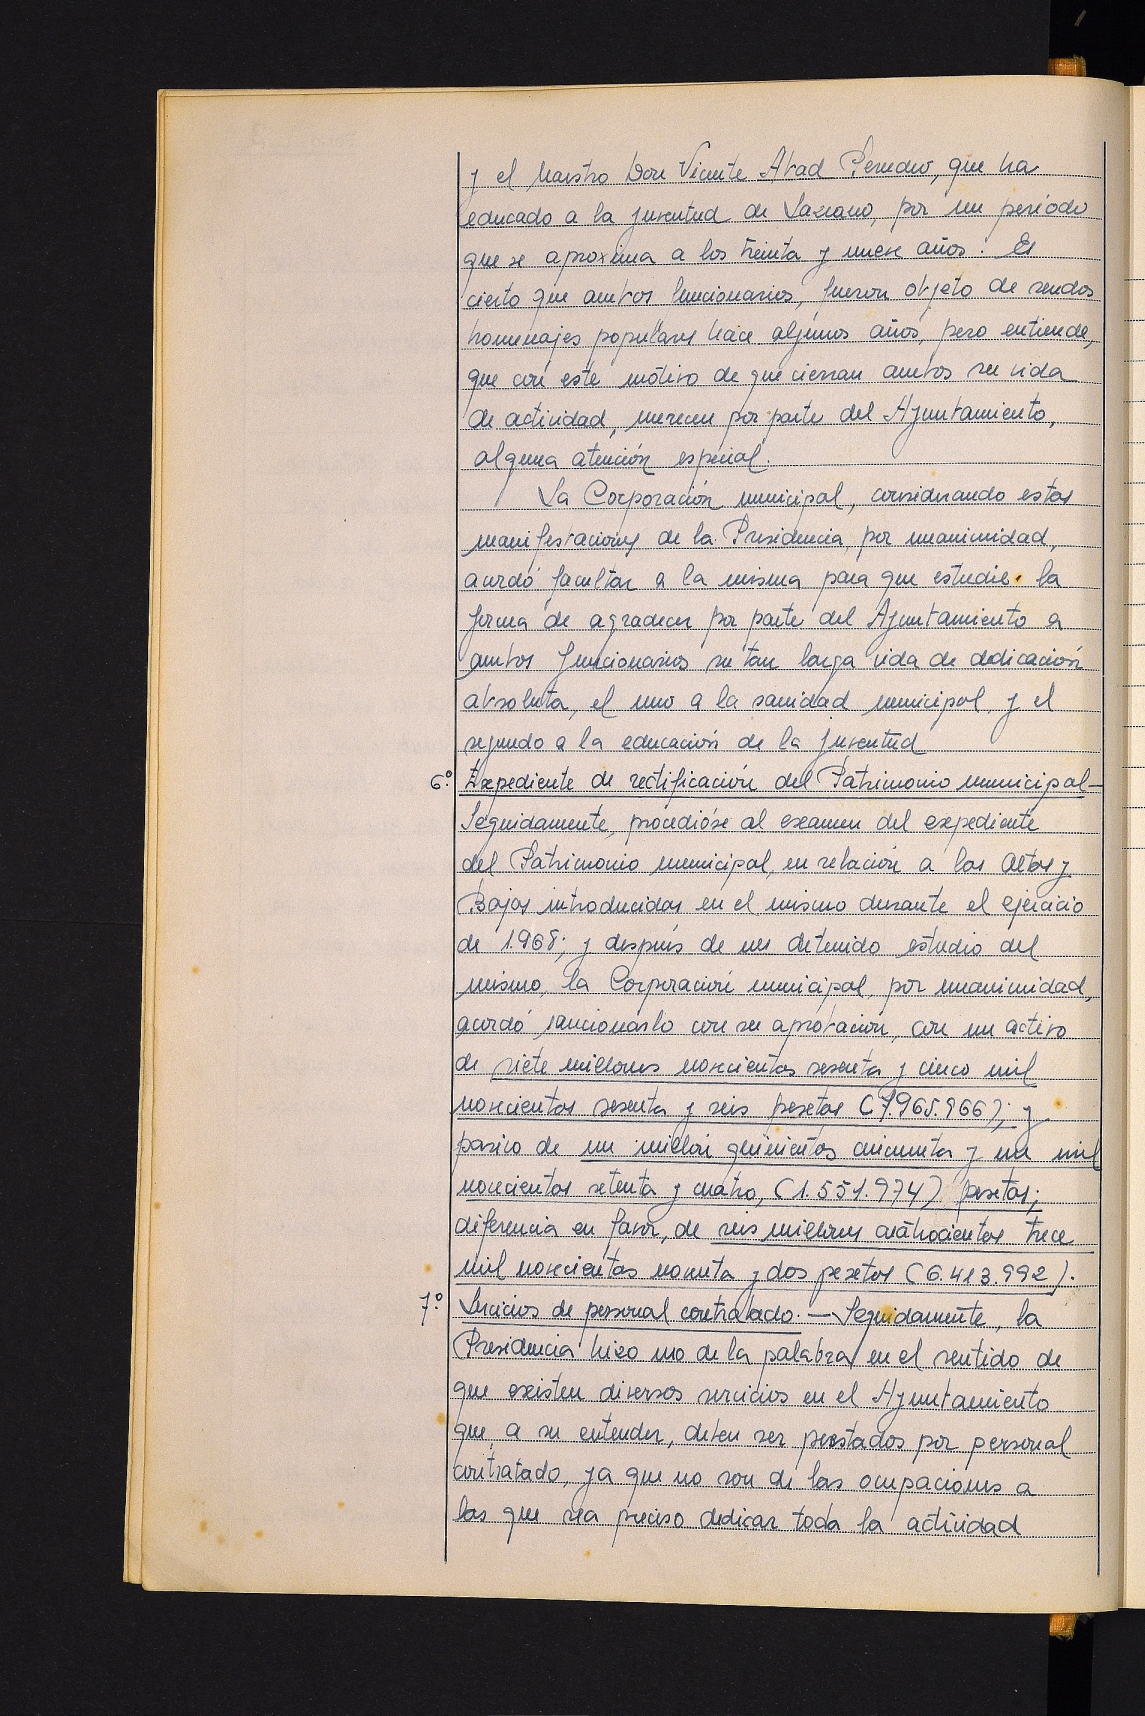 y el Maestro Don Vicente Abad Peredro, que ha
educado a la juventud de Lazcano, por un período
que se aproxima a los treinta y nueve años. Es
cierto que ambos funcionarios, fueron objeto de sendos
homenajes populares hace algunos años, pero entiende,
que con este motivo de que cierran ambos su vida
de actividad, merecen por parte del Ayuntamiento,
alguna atención especial.
La Corporación municipal, considerando estas
manifestaciones de la Presidencia, por unanimidad,
acordó facultar a la misma para que estudie la
forma de agradecer por parte del Ayuntamiento a
ambos funcionarios su tan larga vida de dedicación
absoluta, el uno a la sanidad municipal, y el
segundo a la educación de la juventud
6º. Expediente de rectificación del Patrimonio municipal—
Seguidamente, procedióse al examen del expediente
del Patrimonio municipal, en relación a las Altas y
Bajas introducidas en el mismo durante el ejercicio
de 1.968; y después de un detenido estudio del
mismo, la Corporación municipal, por unanimidad,
acordó sancionarlo con su aprobación, con un activo
de siete millones novecientas sesenta y cinco mil
novecientas sesenta y seis pesetas (7.965.966); y
pasivo de un millón quinientas cincuenta y un mil
novecientas setenta y cuatro, (1.551.974) pesetas;
diferencia en favor, de seis millones cuatrocientas trece
mil novecientas noventa y dos pesetas (6.413.992).
7º. Servicios de personal contratado.— Seguidamente, la
Presidencia hizo uso de la palabra en el sentido de
que existen diversos servicios en el Ayuntamiento
que, a su entender, deben ser prestados por personal
contratado, ya que no son de las ocupaciones a
las que sea preciso dedicar toda la actividad